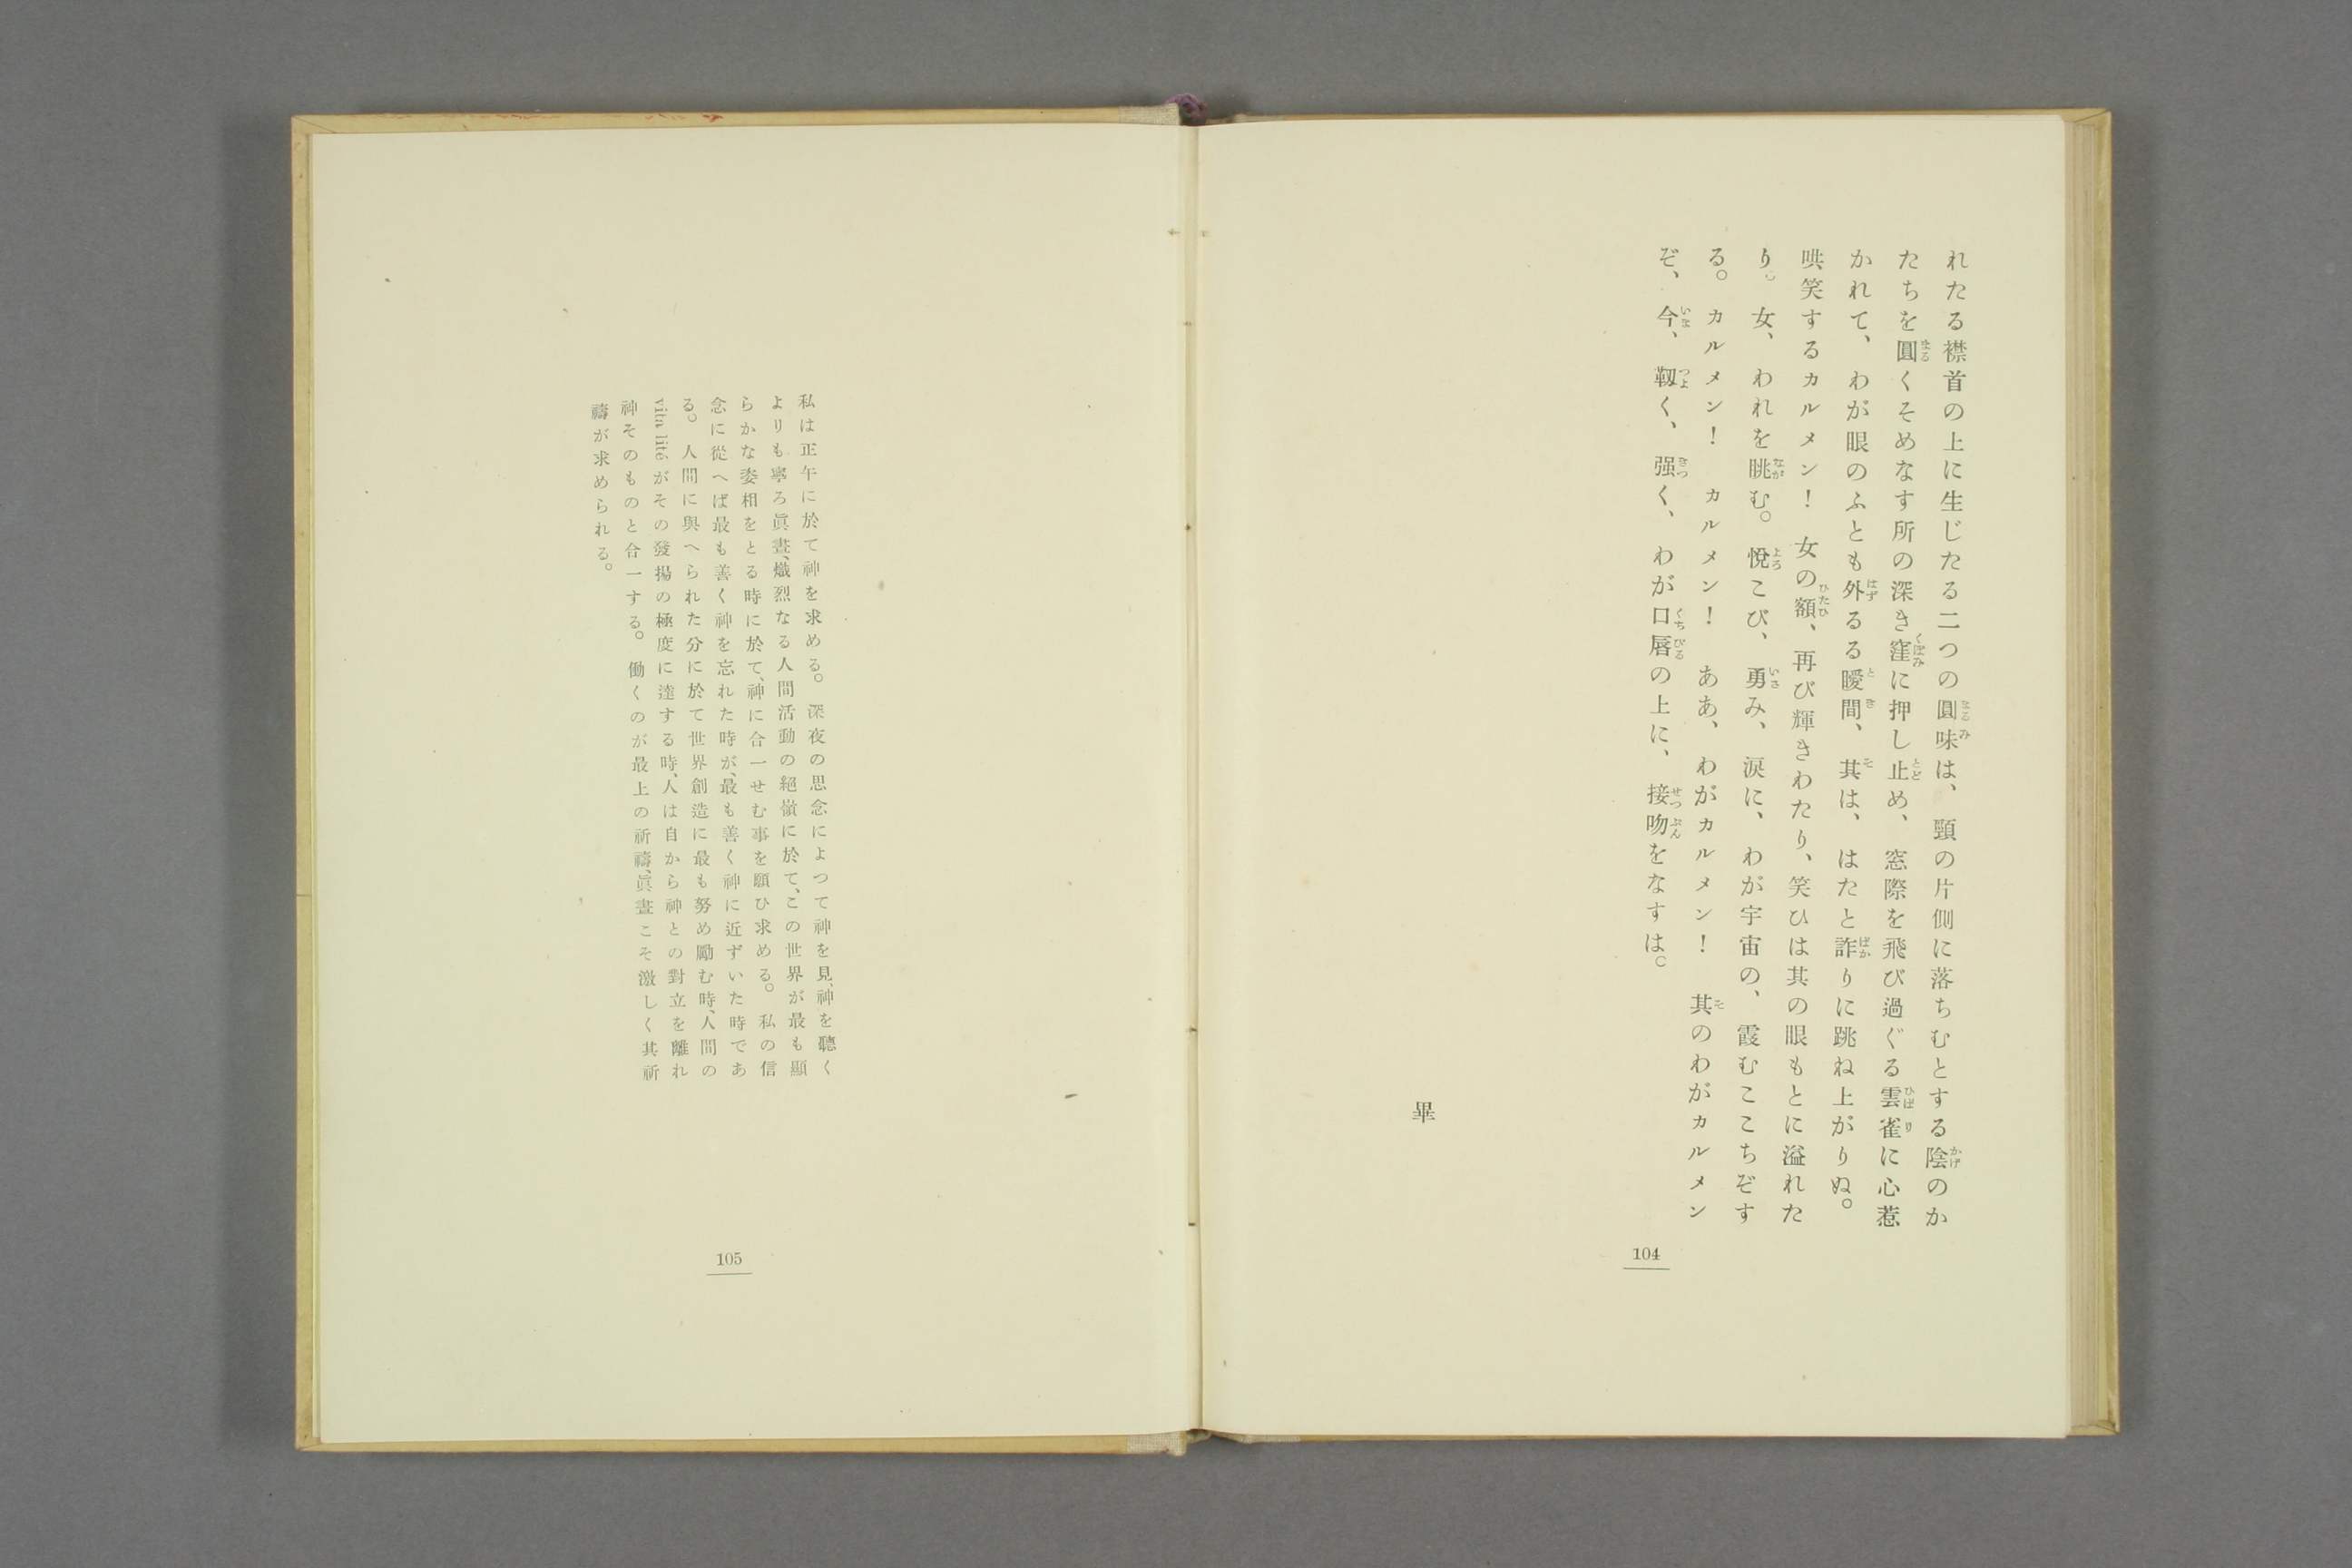 れたる襟首の上に生じたる二つの圓味は、頸の片側に落ちむとする陰のか
たちを圓くそめなす所の深き窪に押し止め、窓際を飛び過ぐる雲雀に心惹
かれて、わが眼のふとも外るる瞹間、其は、はたと詐りに跳ね上がりぬ。
哄笑するカルメン！女の額、再び輝きわたり、笑ひは其の眼もとに溢れた
り。女、われを眺む。悅こび、勇み、淚に、わが宇宙の、霞むここちぞす
る。カルメン！カルメン！ああ、わがカルメン！其のわがカルメン
ぞ、今、靱く、强く、わが口唇の上に、接吻をなすは。
畢
104
私は正午に於て神を求める。深夜の思念によつて神を見、神を聽く
よりも寧ろ眞晝、熾烈なる人間活動の絕嶺に於て、この世界が最も顯
らかな姿相をとる時に於て、神に合一せむ事を願ひ求める。私の信
念に從へば最も善く神を忘れた時が、最も善く神に近ずいた時であ
る。人間に與へられた分に於て世界創造に最も努め勵む時、人間の
vitalité がその發揚の極度に達する時、人は自から神との對立を離れ
神そのものと合一する。働くのが最上の祈禱、眞晝こそ激しく其祈
禱が求められる。
105